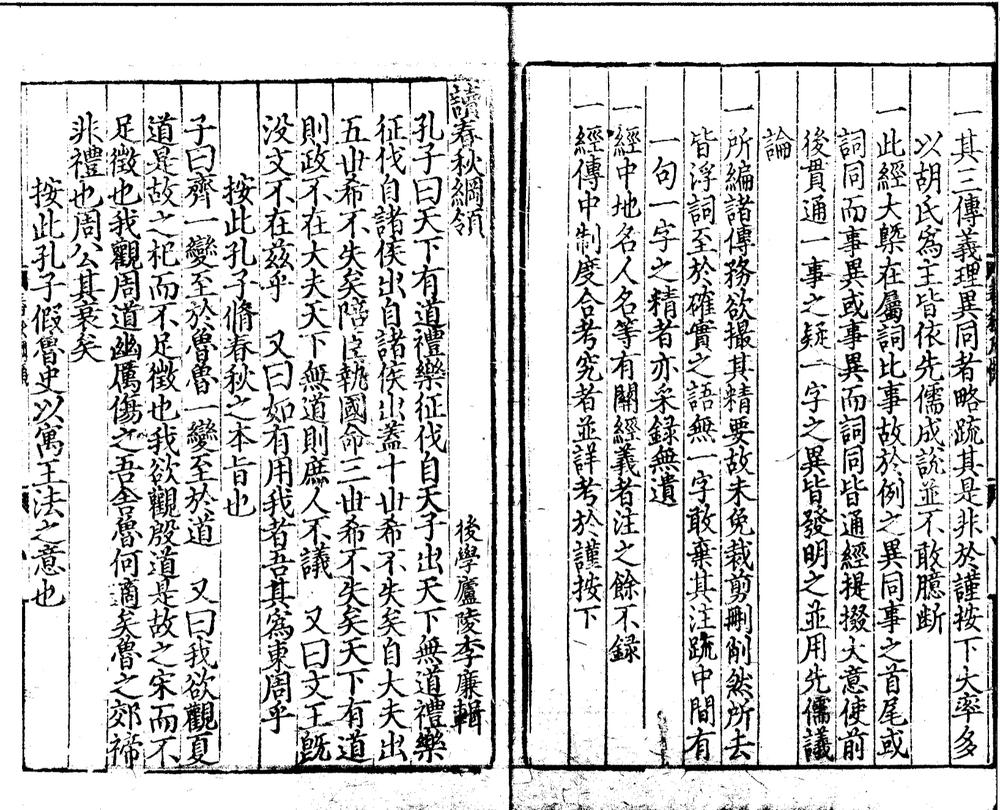 一其三傳義理異同者略疏其是非於謹按下大率多
以胡氏爲主皆依先儒成說並不敢臆断
一此經大槩在屬詞比事故於例之異同事之首尾或
詞同而事異或事異而詞同皆通經提掇大意使前
後貫通一事之疑一字之異皆發明之並用先儒議
論
一所編諸傳務欲撮其精要故未免裁剪刪削然所去
皆浮詞至於確實之語無一字敢棄其注疏中間有
一句一字之精者亦采録無遺
一經中地名人名等有關經義者注之餘不録
一經傳中制度合考究者並詳考於謹按下
讀春秋綱領
後學廬陵李廉輯
孔子曰天下有道禮樂征伐自天子出天下無道禮樂
征伐自諸侯出自諸侯出蓋十世希不失矣自大夫出
五世希不失矣陪臣執國命三世希不失矣天下有道
則政不在大夫天下無道則庶人不議 又曰文王旣
没文不在茲乎 又曰如有用我者吾其爲東周乎
按此孔子脩春秋之本旨也
子曰齊一變至於魯魯一變至於道 又曰我欲觀夏
道是故之杞而不足徵也我欲觀殷道是故之宋而不
足徵也我觀周道幽厲傷之吾舍魯何適矣魯之郊禘
非禮也周公其衰矣
按此孔子假魯史以寓王法之意也